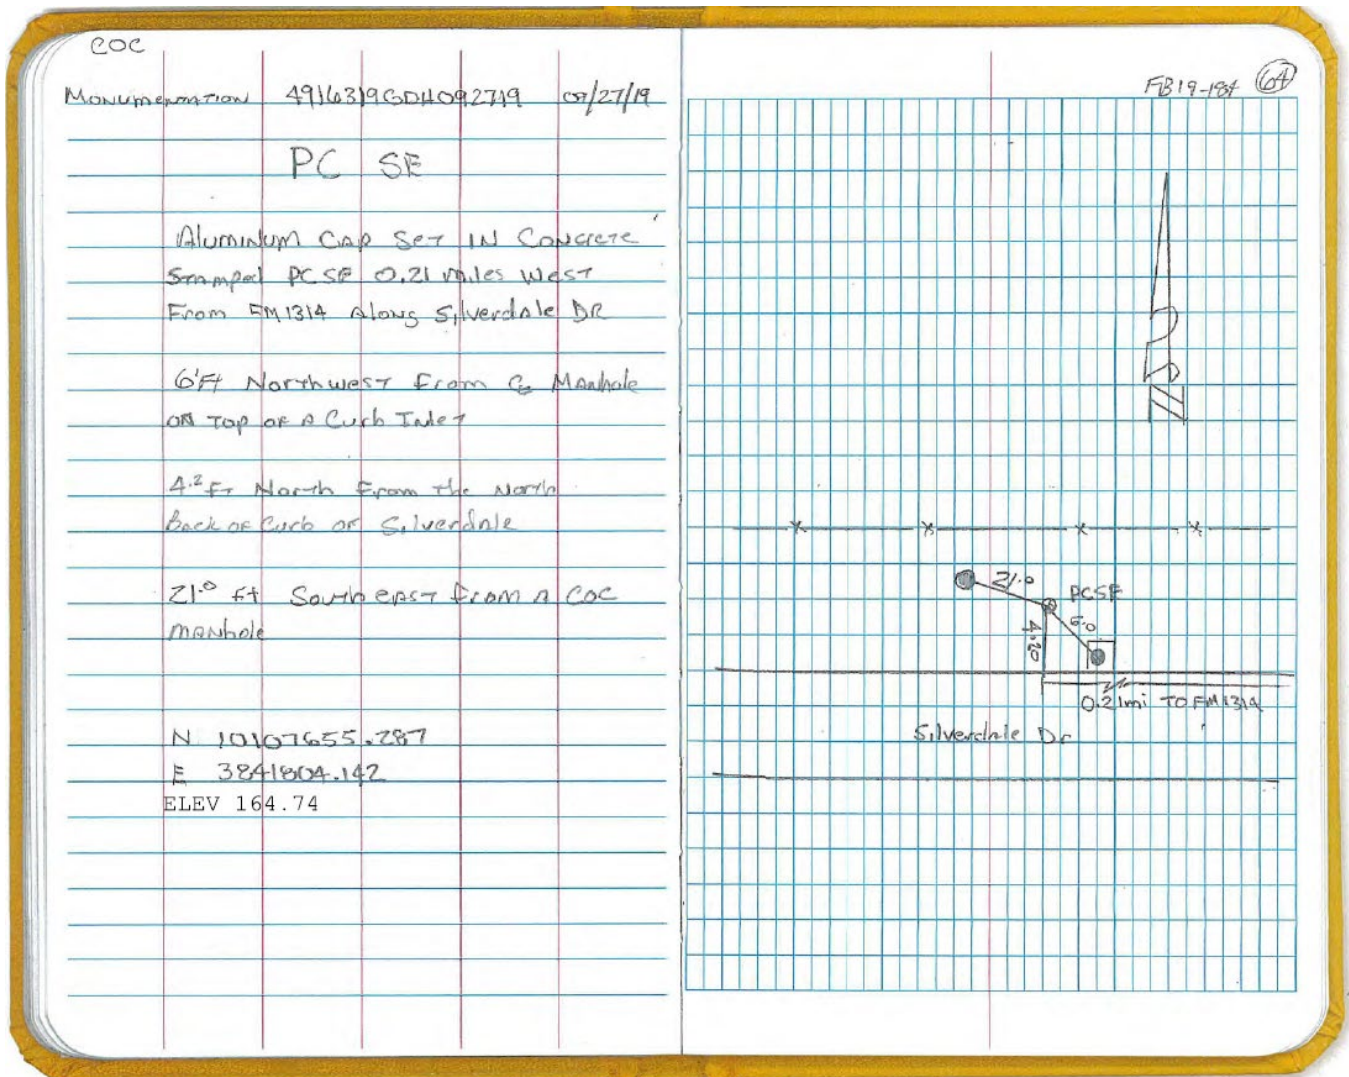 COC
Monumentation 4916319GDH092719 09/27/19
PC SE
Aluminum Cap Set IN Concrete
Stamped PCSE 0.21 miles West
From FM1314 Along Silverdale DR
6'Ft Northwest From Manhole
on Top of A Curb Inlet
4.2 Ft North From the North
Back of Curb of Silverdale
21.0 ft Southeast From A COC
manhole
N 10107655.287
E 3841804.142
ELEV 164.74
FB19-184 64
N
21.0
PCSE
6.0
4.20
0.21mi TO FM1314
Silverdale Dr